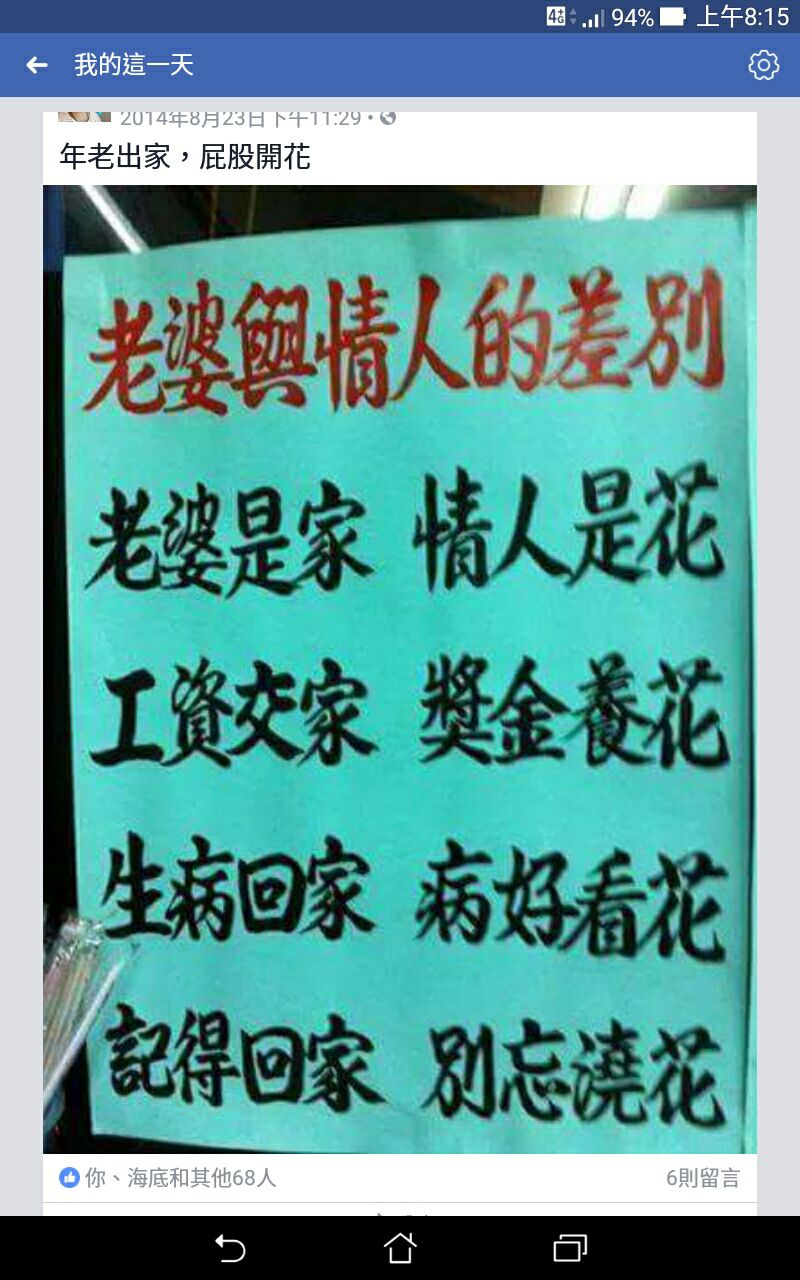 94% 上午8:15
我的這一天
2014年8月23日下午11:29
年老出家，屁股開花
老婆與情人的差別
老婆是家 情人是花
工資交家 獎金養花
生病回家 病好看花
記得回家 別忘澆花
你、海底和其他68人 6則留言